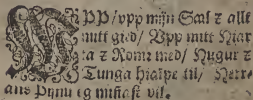 UPP/upp mijn Sæl ꝛ allt
mitt gied/ Upp mitt Hiar
ta ꝛ Rome med/ Hugur ꝛ
Tunga hialpe til/ Herr-
ans Pijnu eg miñast vil.